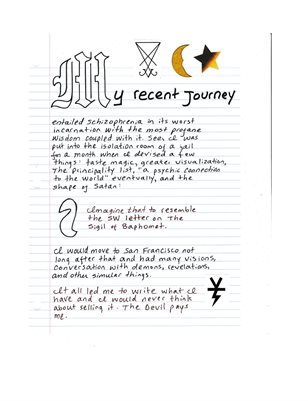 My recent Journey
entailed schizophrenia in its worst
incarnation with the most profane
Wisdom coupled with it. See, I was
put into the isolation room of a jail
for a month when I devised a few
things: taste magic, greater visualization,
The Principality list, "a psychic connection
to the world" eventually, and the
shape of Satan:
Imagine that to resemble
the SW letter on The
Sigil of Baphomet.
I would move to San Francisco not
long after that and had many visions,
conversation with demons, revelations,
and other similar things.
It all led me to write what I
have and I would never think
about selling it. The Devil pays
me.